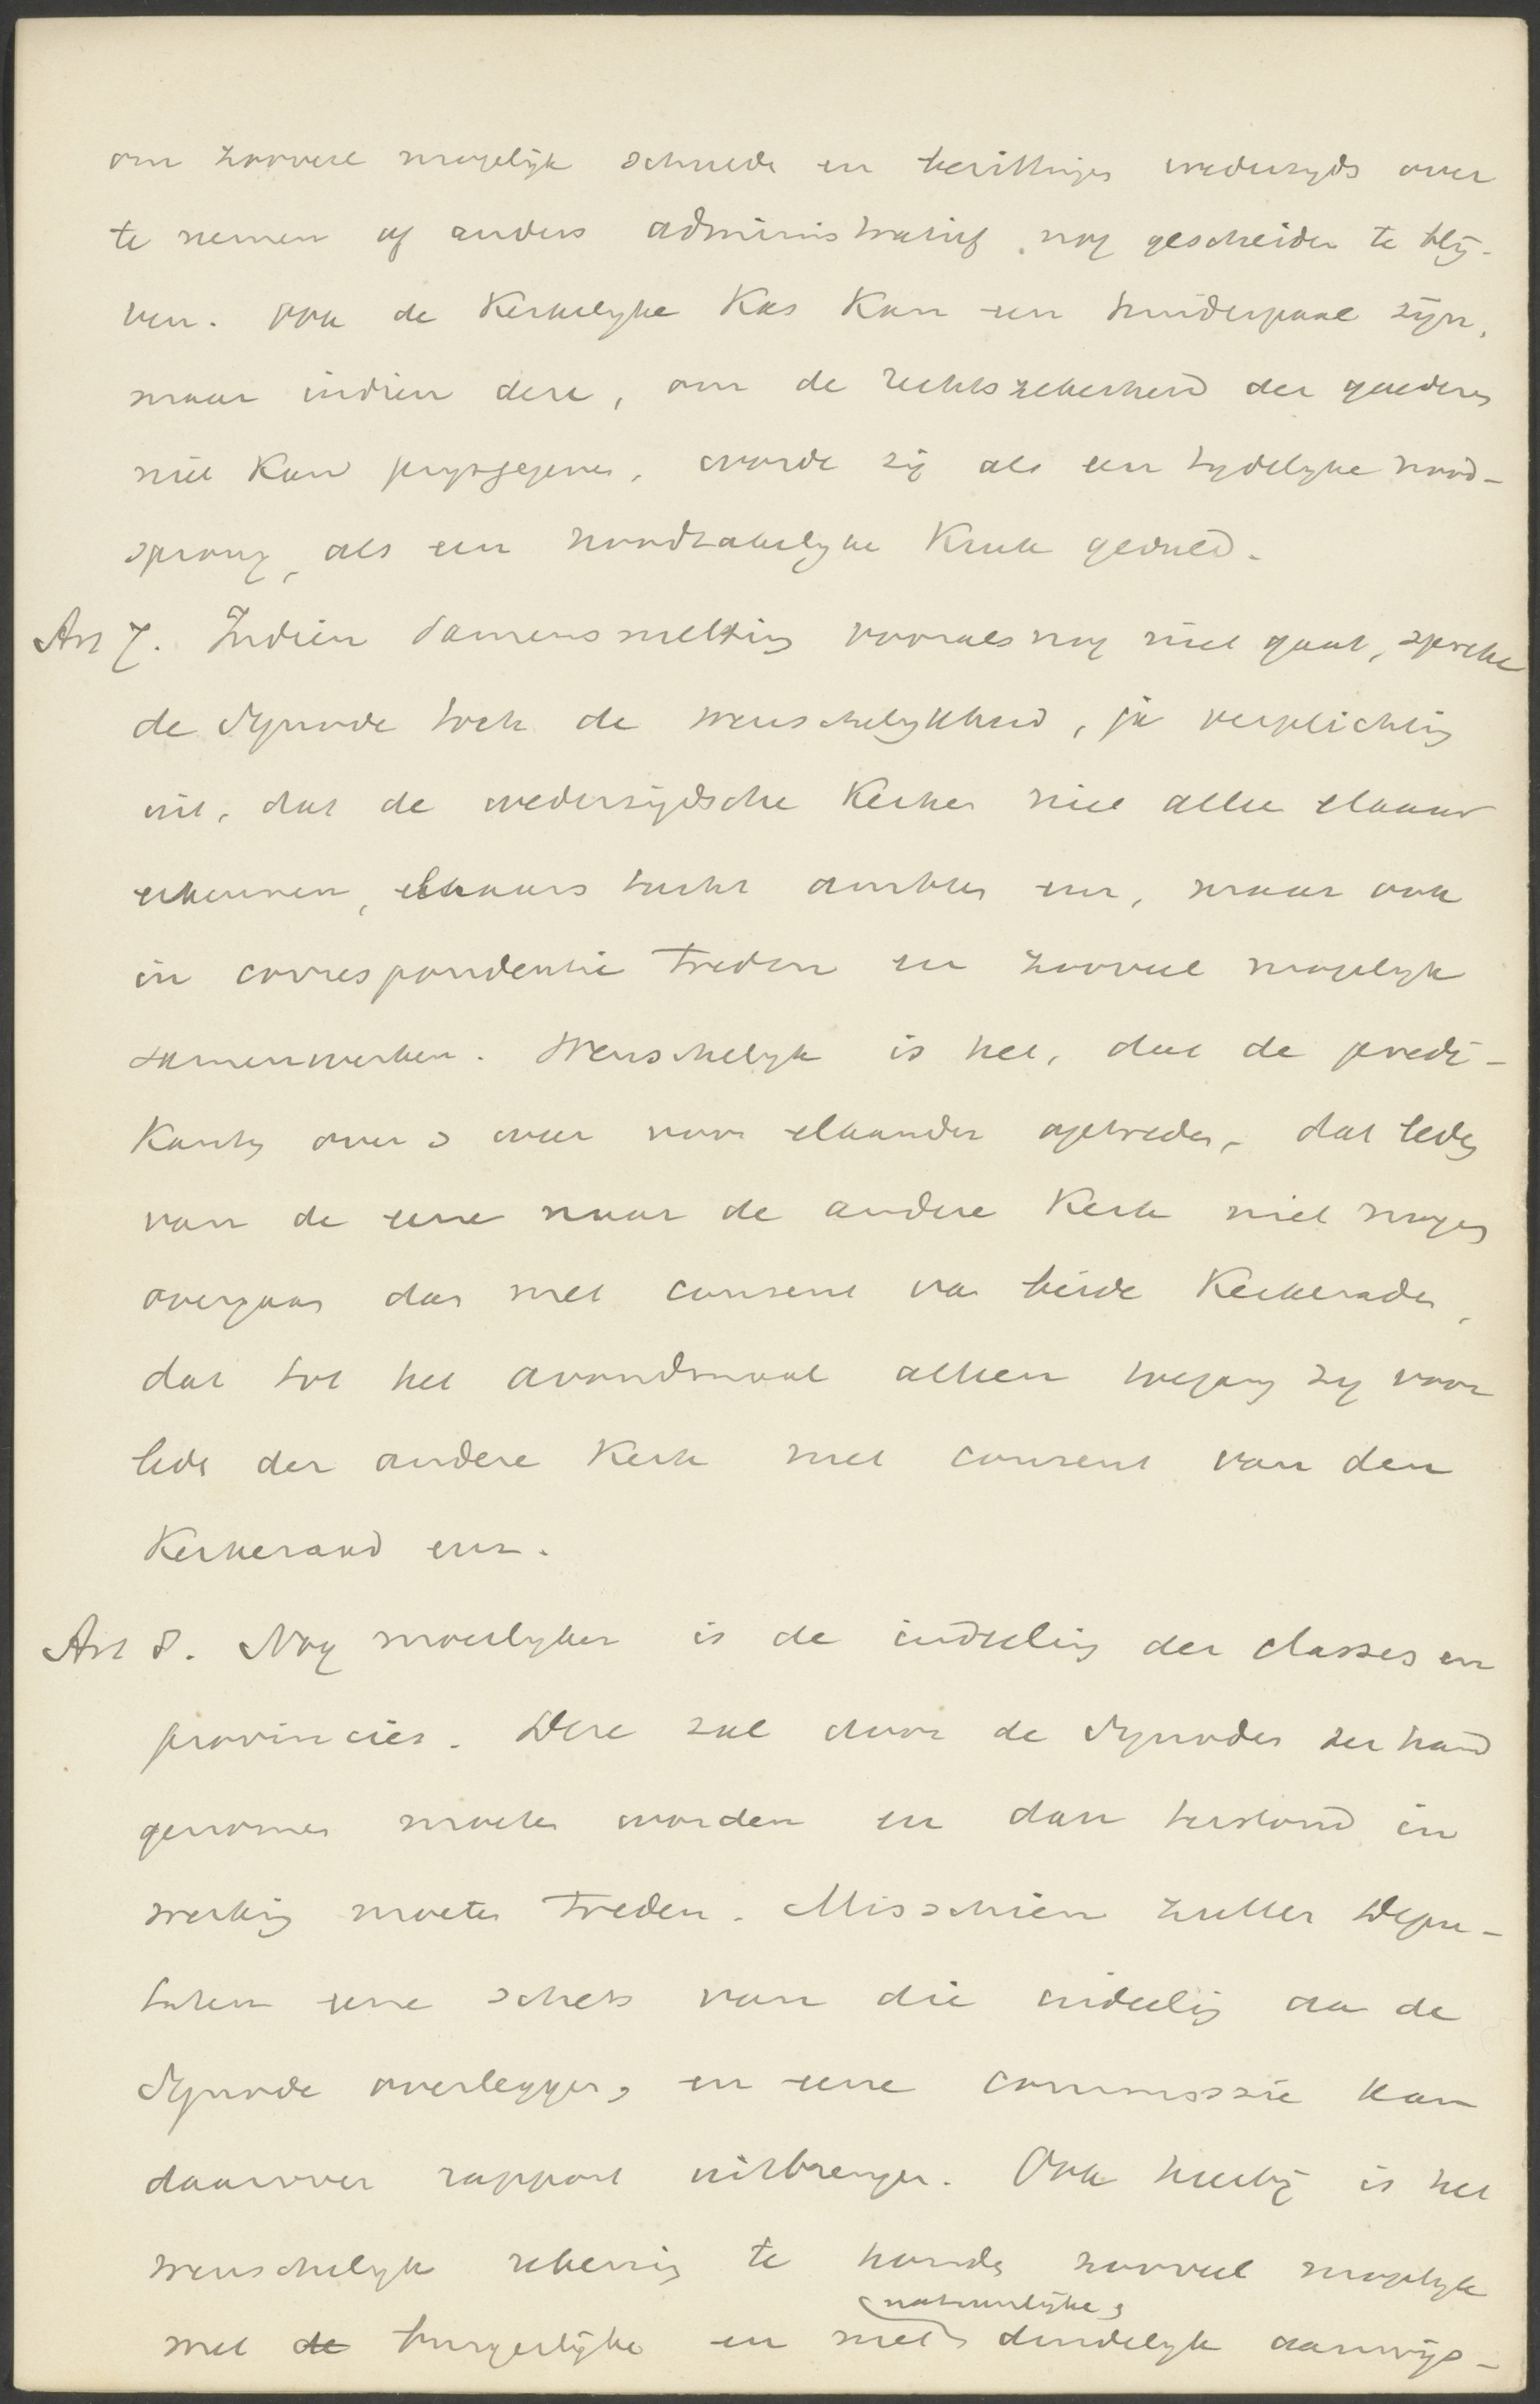 om zooveel mogelijk schulden en bezittingen wederzyds over
te nemen of anders administratief nog gescheiden te blij-
ven. Ook de Kerkelyke Kas kan een hinderpaal zijn,
maar indien deze, om de rechtszekerheid der goederen
niet kan prysgegeven, worde zij als een tydelyke nood-
sprong, als een noodzakelyke Kruk geduld.
Art 7. Indien samensmelting vooralsnog niet gaat, spreke
de Synode toch de wenschelykheid, ja verplichting
uit, dat de wederzijdsche Kerken niet alleen elkaar
erkennen, elkaars tucht ambten enz, maar ook
in correspondentie treden en zooveel mogelyk
samenwerken. Wenschelyk is het, dat de predi-
kanten over en weer voor elkander optreden, dat leden
van de eene naar de andere Kerk niet mogen
overgaan dan met consent van beide Kerkeraden,
dat tot het avondmaal alleen toegang zy voor
leden der andere Kerk met consent van den
Kerkeraad enz.
Art 8. Nog moeilyker is de indeeling der classes en
provincies. Deze zal door de Synodes ter hand
genomen moeten worden en dan terstond in
werking moeten treden. Misschien zullen Depu-
taten eene schets van die indeeling aan de
Synode overleggen, en eene commissie kan
daarover rapport uitbrengen. Ook hierbij is het
wenschelyk rekening te houden zooveel mogelyk
natuurlijke,
met de burgerlijke en met duidelyk aanwijs-